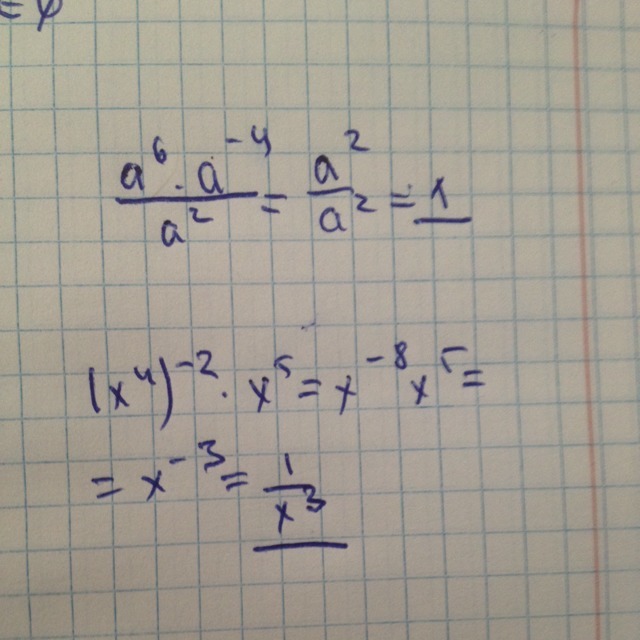 = φ
a⁶ · a⁻⁴ / a² = a² / a² = 1
(x⁴)⁻² · x⁵ = x⁻⁸ x⁵ =
= x⁻³ = 1 / x³